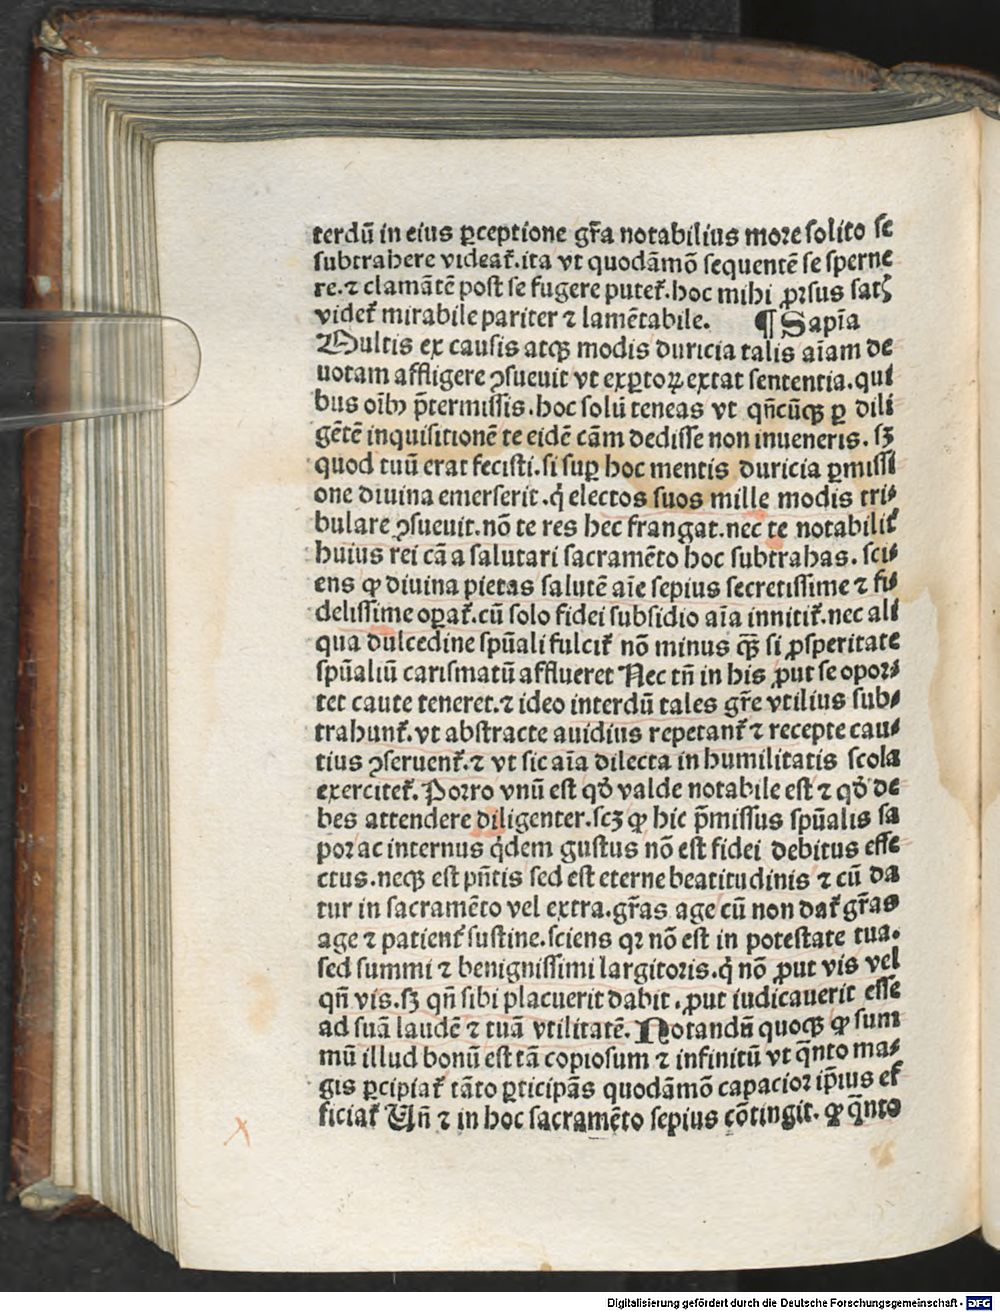 terdū in eius ꝑceptione gr̄a notabilius more ſolito ſe
ſubtrahere videat᷑.ita vt quodāmō ſequentē ſe ſperne
re.⁊ clamātē poſt ſe fugere putet᷑.hoc mihi ꝓrſus ſatꝭ
videt᷑ mirabile pariter ⁊ lamētabile. ¶ Sapīa
Multis ex cauſis atqꝫ modis duricia talis aīam de
uotam affligere ꝯſueuit vt exꝑtoꝝ extat ſententia.qui
bus oībꝰ p̄termiſſis.hoc ſolū teneas vt qn̄cūqꝫ ꝑ dili
gētē inquiſitionē te eidē cām dediſſe non inueneris.ſꝫ
quod tuū erat feciſti.ſi ſuꝑ hoc mentis duricia ꝑmiſſi
one diuina emerſerit.q̇ electos ſuos mille modis tri⸗
bulare ꝯſueuit.nō te res hec frangat.nec te notabilit᷑
huius rei cā a ſalutari ſacramēto hoc ſubtrahas. ſci⸗
ens ꝙ diuina pietas ſalutē aīe ſepius ſecretiſſime ⁊ fi⸗
deliſſime oꝑat᷑.cū ſolo fidei ſubſidio aīa innitit᷑.nec ali
qua dulcedine ſpūali fulcit᷑ nō minus qꝫ̄ ſi ꝓſperitate
ſpūaliū cariſmatū afflueret Nec tn̄ in his ꝓut ſe opor⸗
tet caute teneret.⁊ ideo interdū tales gr̄e vtilius ſub⸗
trahunt᷑.vt abſtracte auidius repetant᷑ ⁊ recepte cau⸗
tius ꝯſeruent᷑.⁊ vt ſic aīa dilecta in humilitatis ſcola
exercitet᷑.Porro vnū eſt qd̓ valde notabile eſt ⁊ qd̓ de
bes attendere diligenter.ſcꝫ ꝙ hic p̄miſſus ſpūalis ſa
por ac internus q̇dem guſtus nō eſt fidei debitus effe
ctus.neqꝫ eſt pn̄tis ſed eſt eterne beatitudinis ⁊ cū da
tur in ſacramēto vel extra.gr̄as age cū non dat᷑ gr̄as
age ⁊ patient᷑ ſuſtine.ſciens qꝛ nō eſt in poteſtate tua.
ſed ſummi ⁊ benigniſſimi largitoris.q̇ nō ꝓut vis vel
qn̄ vis.ſꝫ qn̄ ſibi placuerit dabit.ꝓut iudicauerit eſſe
ad ſuā laudē ⁊ tuā vtilitatē. Notandū quoqꝫ ꝙ ſum
mū illud bonū eſt tā copioſum ⁊ infinitū vt q̄nto ma⸗
gis ꝑcipiat᷑ tāto ꝑticipās quodāmō capacior ip̄ius ef
ficiat᷑ Un̄ ⁊ in hoc ſacramēto ſepius cōtingit. ꝙ q̄nto
Digitalisierung gefördert durch die Deutsche Forschungsgemeinschaft - DFG